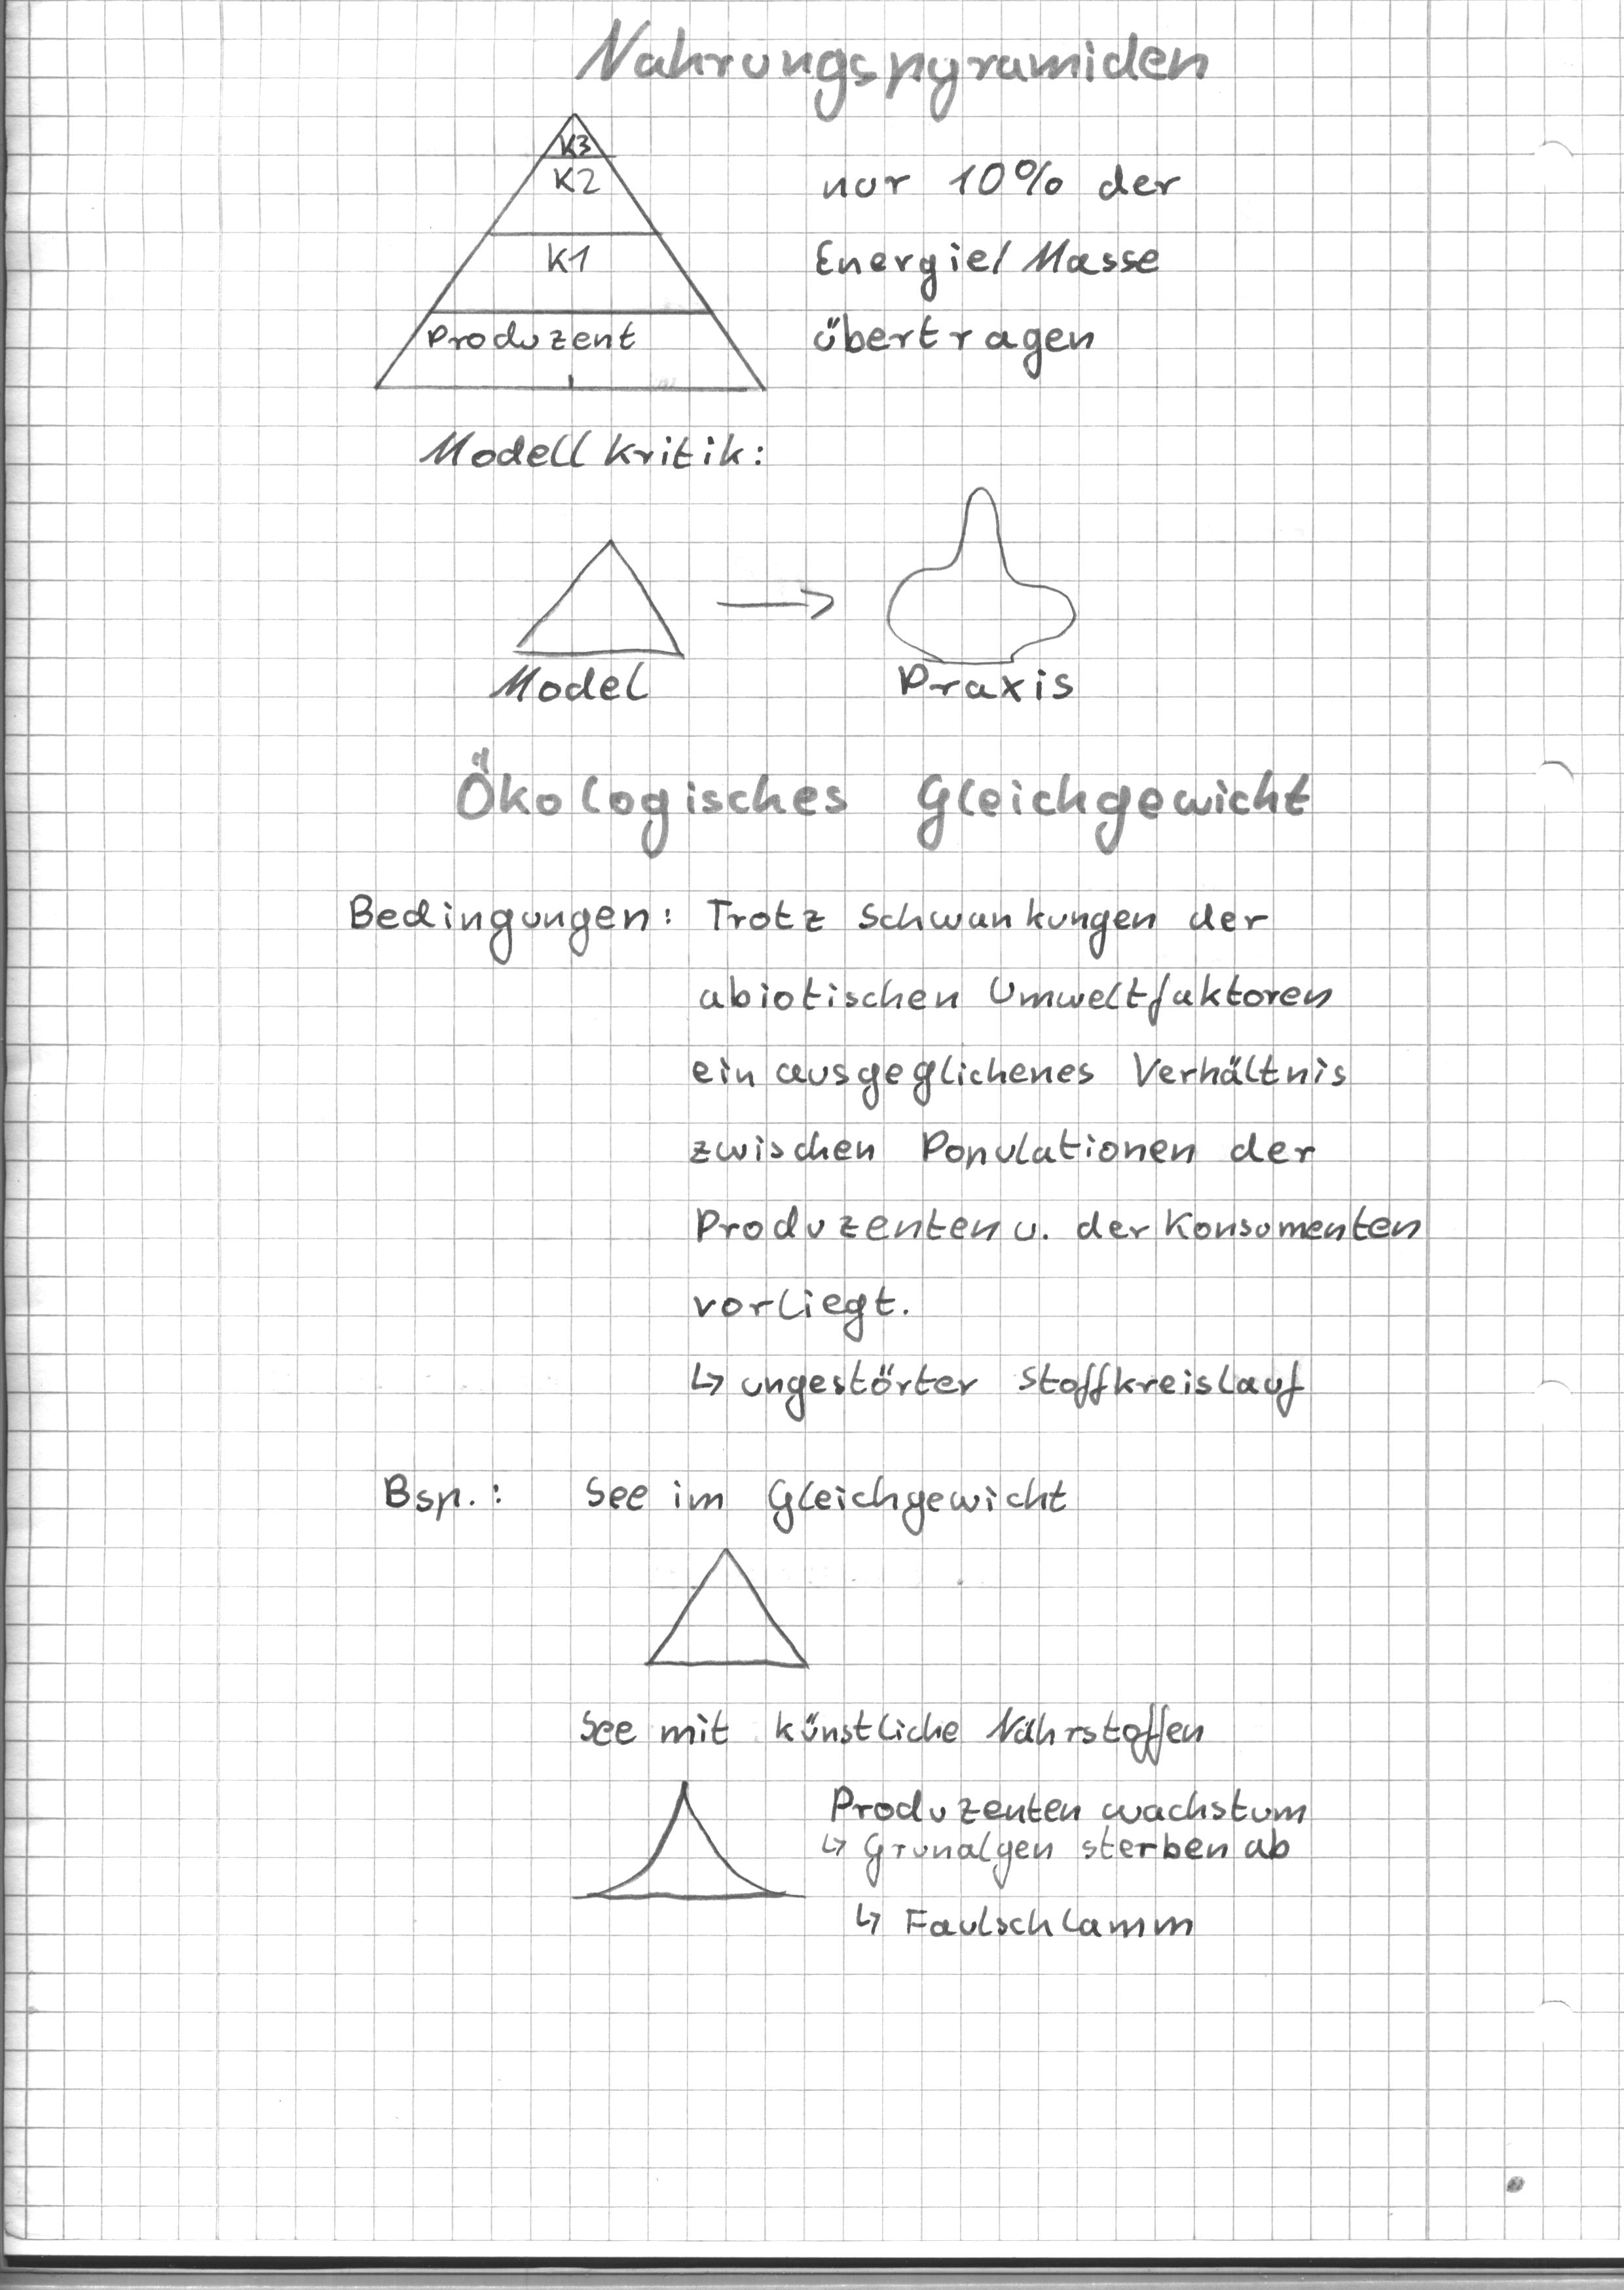 Nahrungspyramiden
K3
K2
nur 10% der
K1
Energie/Masse
Produzent
übertragen
Modellkritik:
Model
Praxis
Ökologisches Gleichgewicht
Bedingungen: Trotz Schwankungen der
abiotischen Umweltfaktoren
ein ausgeglichenes Verhältnis
zwischen Populationen der
Produzenten u. der Konsumenten
vorliegt.
↳ ungestörter Stoffkreislauf
Bsp.: See im Gleichgewicht
See mit künstliche Nährstoffen
Produzenten wachstum
↳ Grunalgen sterben ab
↳ Faulschlamm